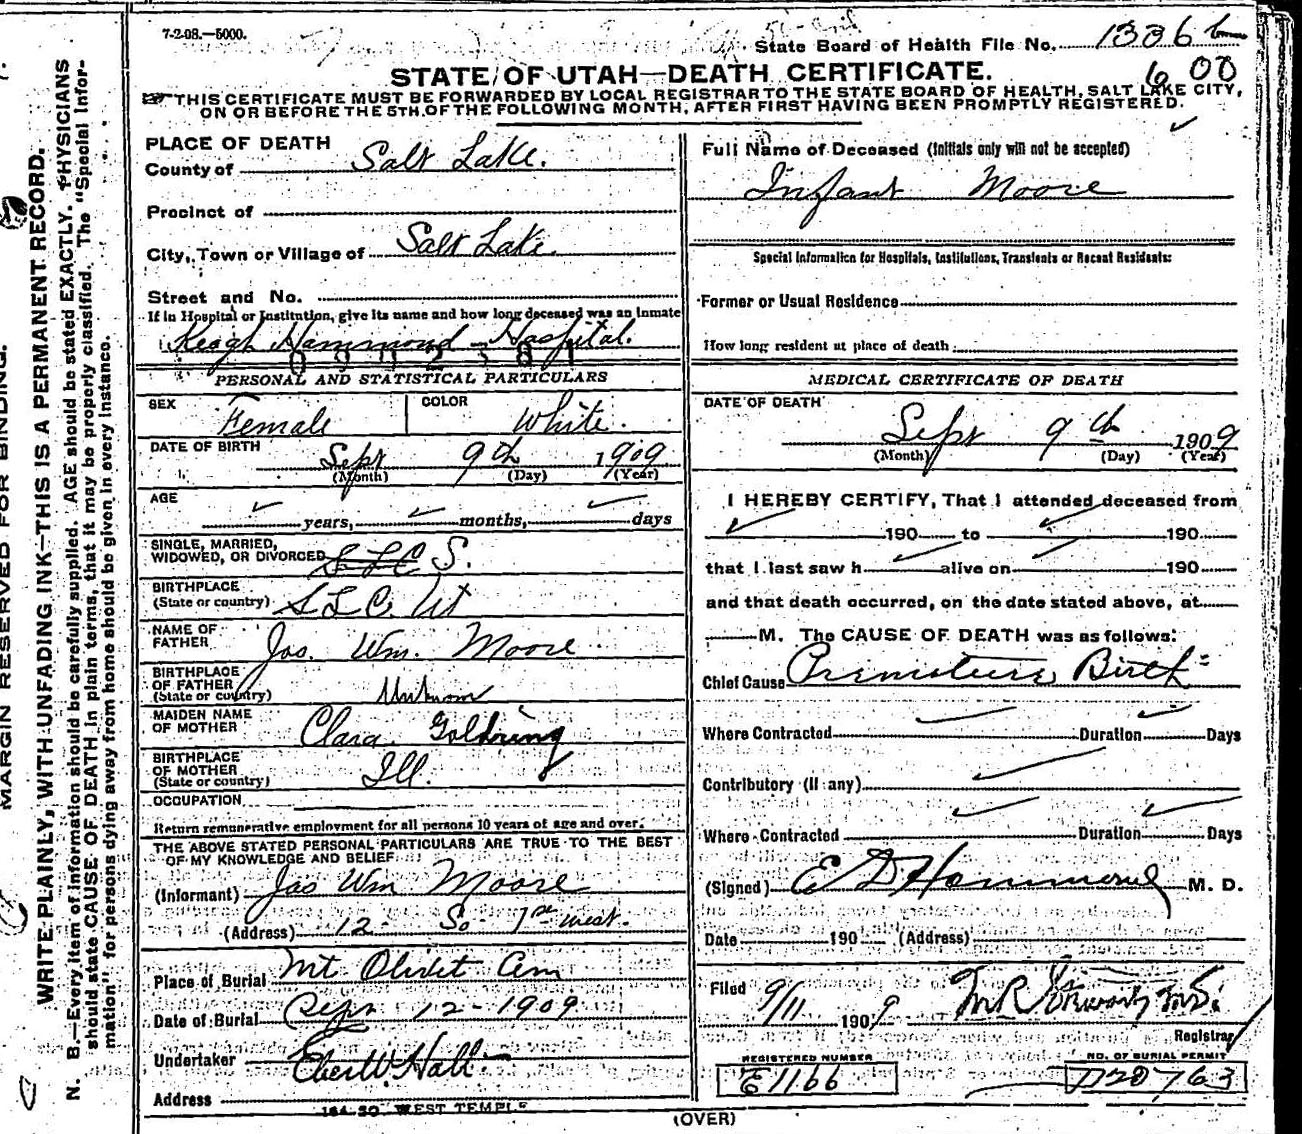 7-2-08.—5000.
State Board of Health File No. 1336
600
STATE OF UTAH—DEATH CERTIFICATE.
THIS CERTIFICATE MUST BE FORWARDED BY LOCAL REGISTRAR TO THE STATE BOARD OF HEALTH, SALT LAKE CITY,
ON OR BEFORE THE 5TH OF THE FOLLOWING MONTH, AFTER FIRST HAVING BEEN PROMPTLY REGISTERED.
MARGIN RESERVED FOR BINDING.
WRITE PLAINLY, WITH UNFADING INK—THIS IS A PERMANENT RECORD.
N. B.—Every item of information should be carefully supplied. AGE should be stated EXACTLY. PHYSICIANS
should state CAUSE OF DEATH in plain terms, that it may be properly classified. The "Special Infor-
mation" for persons dying away from home should be given in every instance.
PLACE OF DEATH
County of Salt Lake.
Precinct of
City, Town or Village of Salt Lake.
Street and No.
If in Hospital or Institution, give its name and how long deceased was an Inmate
Keogh Hammond Hospital.
PERSONAL AND STATISTICAL PARTICULARS
SEX Female COLOR White.
DATE OF BIRTH Sept 9th 1909
(Month) (Day) (Year)
AGE
years, months, days
SINGLE, MARRIED,
WIDOWED, OR DIVORCED SLC S.
BIRTHPLACE
(State or country) SLC. Ut
NAME OF
FATHER Jas. Wm. Moore
BIRTHPLACE
OF FATHER
(State or country) Unknown
MAIDEN NAME
OF MOTHER Clara Goldring
BIRTHPLACE
OF MOTHER
(State or country) Ill.
OCCUPATION
Return remunerative employment for all persons 10 years of age and over.
THE ABOVE STATED PERSONAL PARTICULARS ARE TRUE TO THE BEST
OF MY KNOWLEDGE AND BELIEF
(Informant) Jas Wm Moore
(Address) 12 So 1st West.
Place of Burial Mt Olivet Cem
Date of Burial Sept 12-1909
Undertaker Eber W. Hall
Address
164 SO WEST TEMPLE
Full Name of Deceased (Initials only will not be accepted)
Infant Moore
Special Information for Hospitals, Institutions, Transients or Recent Residents:
Former or Usual Residence
How long resident at place of death
MEDICAL CERTIFICATE OF DEATH
DATE OF DEATH
Sept 9th 1909
(Month) (Day) (Year)
I HEREBY CERTIFY, That I attended deceased from
190 to 190
that I last saw h alive on 190
and that death occurred, on the date stated above, at
M. The CAUSE OF DEATH was as follows:
Chief Cause Premature Birth
Where Contracted Duration Days
Contributory (if any)
Where Contracted Duration Days
(Signed) E D Hammond M. D.
Date 190 (Address)
Filed
9/11 1909
Registrar
REGISTERED NUMBER
E1166
NO. OF BURIAL PERMIT
D20763
(OVER)